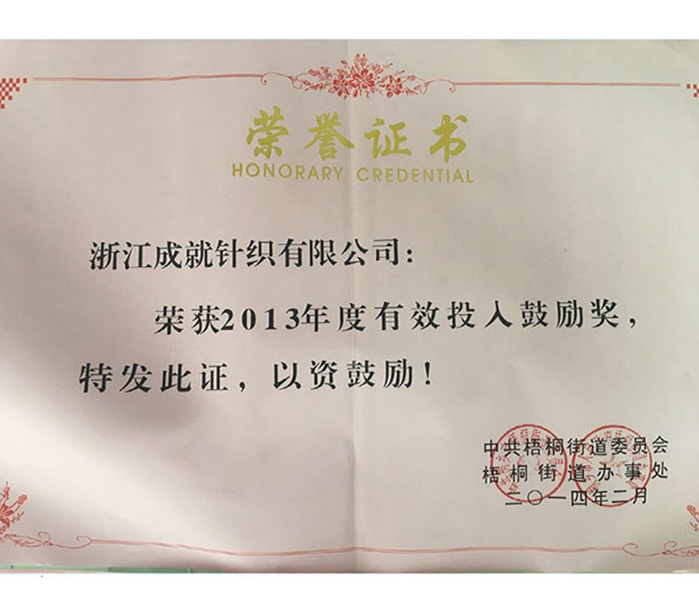 荣誉证书
HONORARY CREDENTIAL
浙江成就针织有限公司：
荣获2013年度有效投入鼓励奖，
特发此证，以资鼓励！
中共梧桐街道委员会
梧桐街道办事处
二〇一四年二月